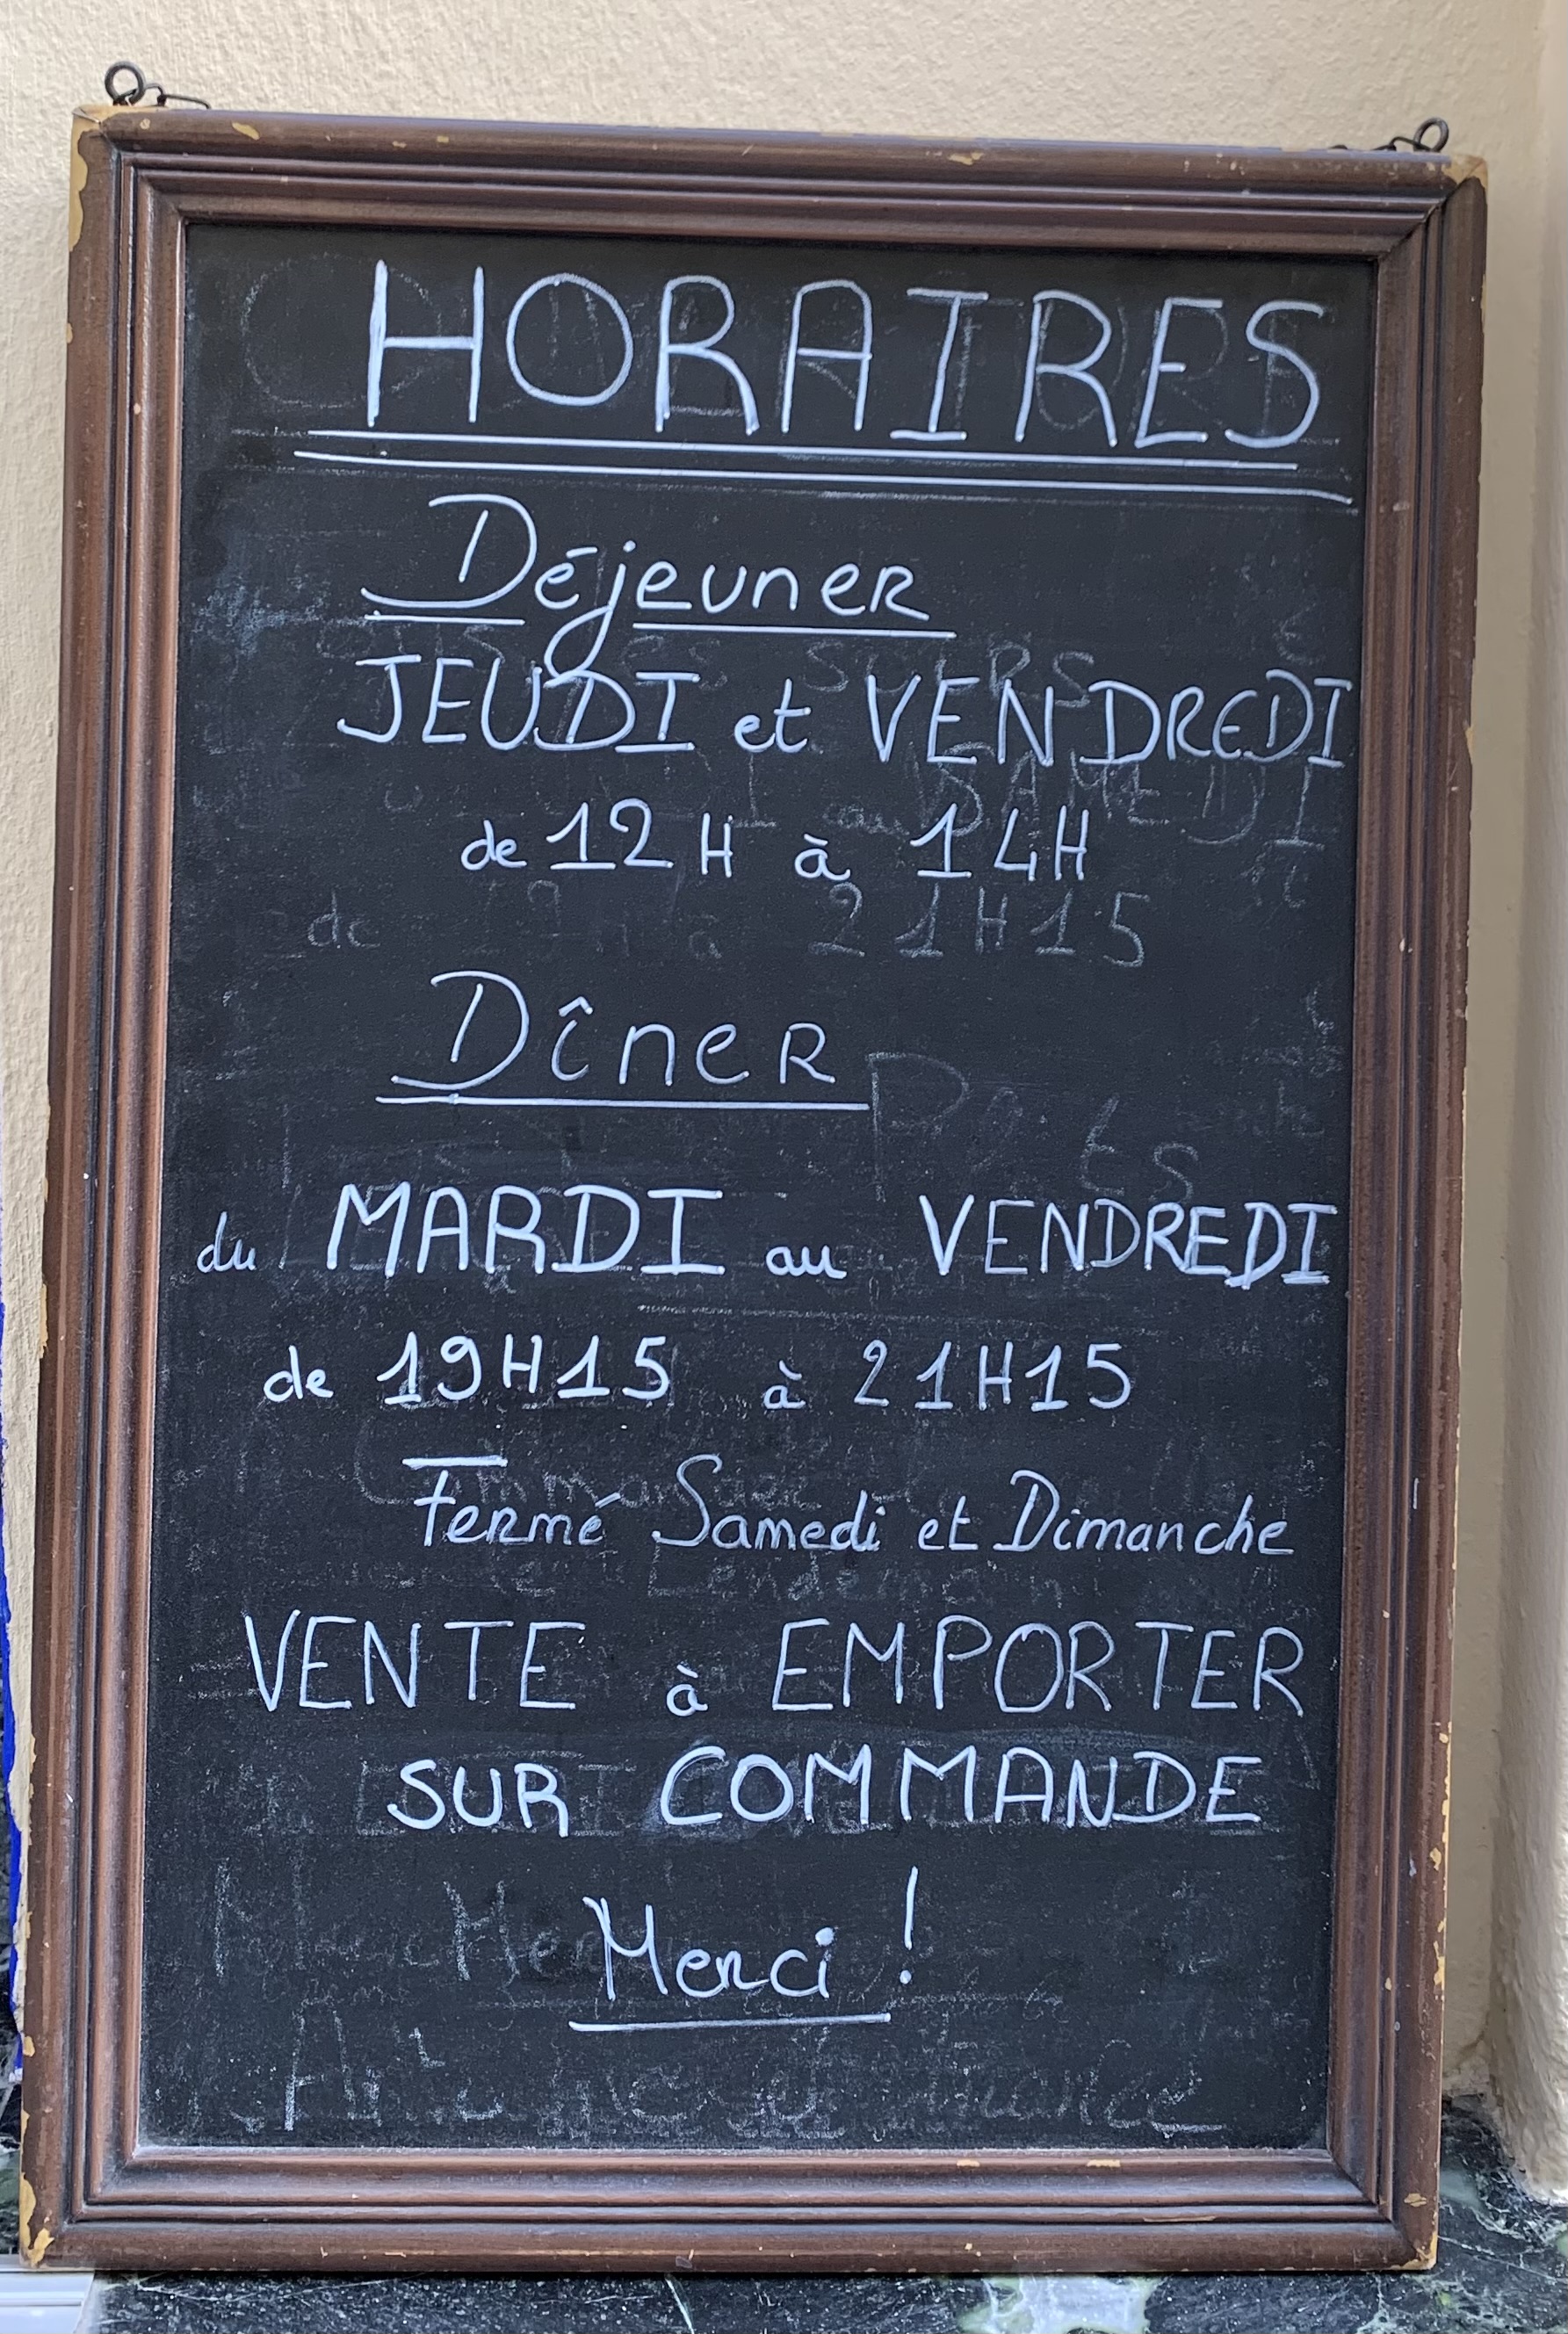 HORAIRES
Déjeuner
JEUDI et VENDREDI
de 12H à 14H
de à 21H15
Dîner
du MARDI au VENDREDI
de 19H15 à 21H15
Fermé Samedi et Dimanche
VENTE à EMPORTER
SUR COMMANDE
Merci !